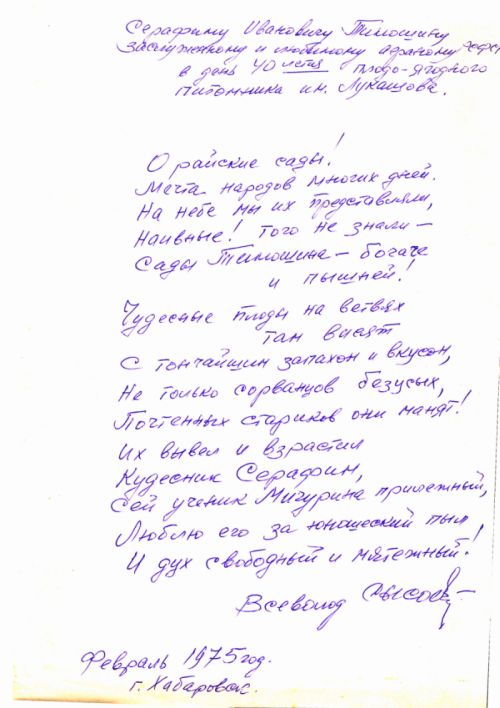 Серафиму Ивановичу Тимошину
заслуженному и любимому агроному РСФСР
в день 40 летия плодо-ягодного
питомника им. Лукашова.
О райские сады!
Мечта народов многих дней.
На небе мы их представляли,
Наивные! Того не знали –
Сады Тимошина – богаче
и пышней!
Чудесные плоды на ветвях
там висят
С тончайшим запахом и вкусом,
Не только сорванцов безусых,
Почтенных стариков они манят!
Их вывел и взрастил
Кудесник Серафим,
Сей ученик Мичурина прилежный,
Люблю его за юношеский пыл
И дух свободный и мятежный!
Всеволод Сысоев
Февраль 1975 год.
г. Хабаровск.